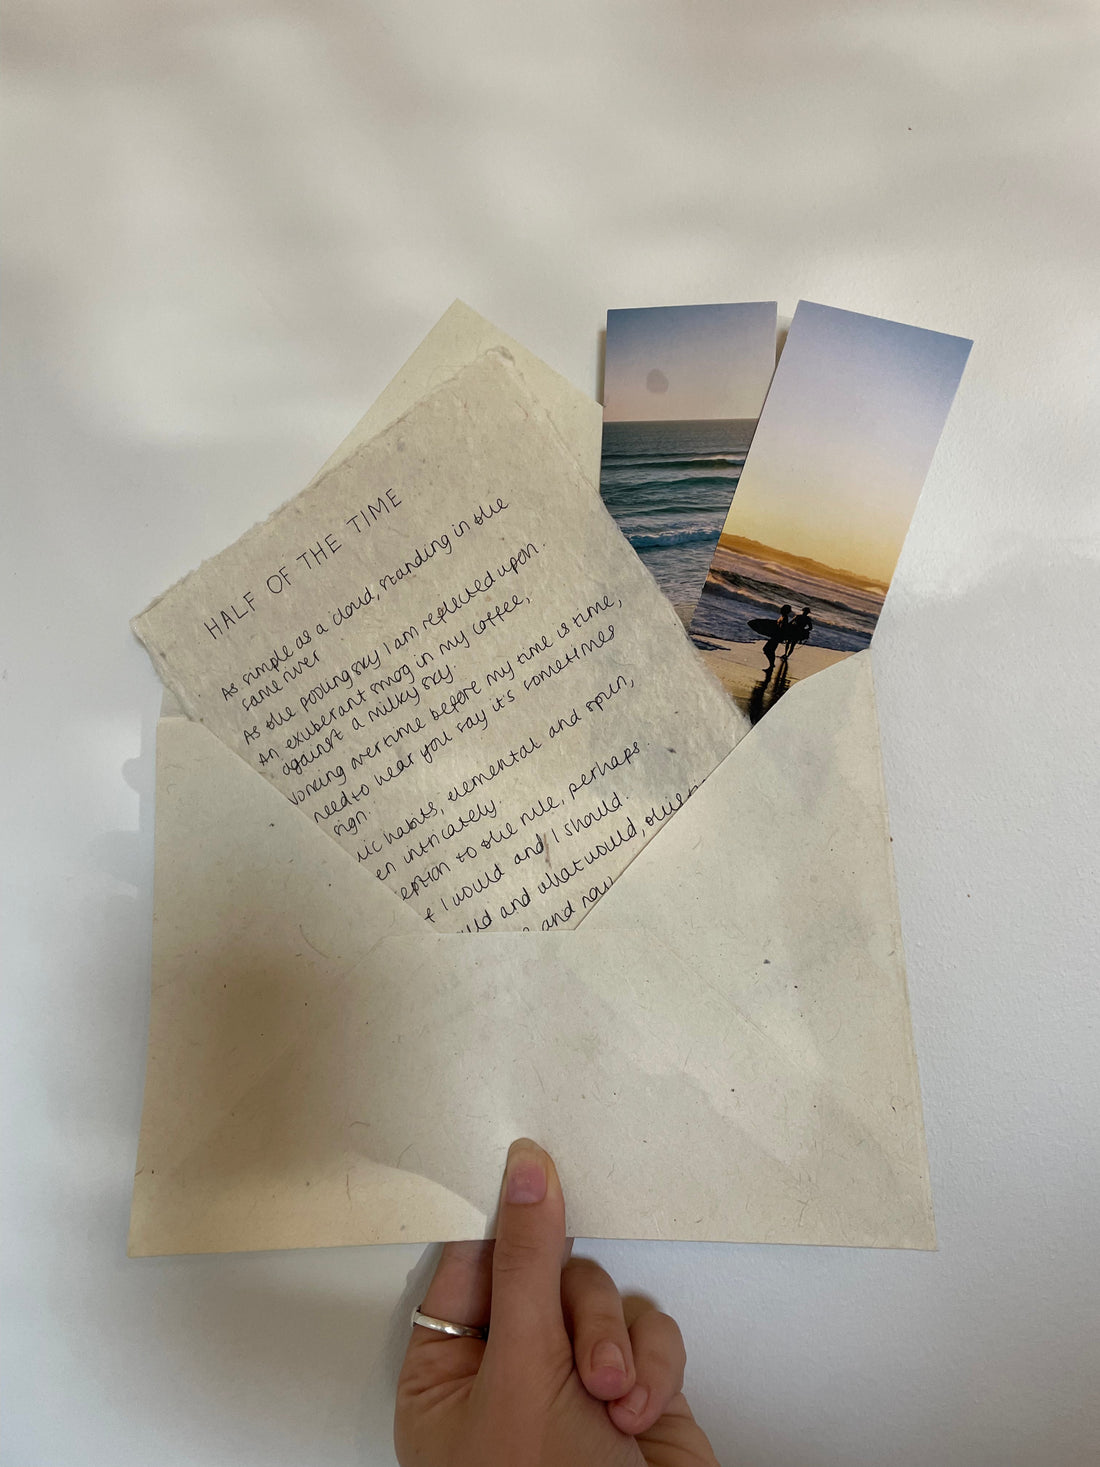 HALF OF THE TIME
As simple as a cloud, standing in the
same river
As the pooling sky I am reflected upon.
An exuberant smog in my coffee,
against a milky sky.
Working overtime before my time is time,
need to hear you say it's sometimes
sign.
habits, elemental and spun,
en intricately.
eption to the rule, perhaps.
I would and I should.
uld and what would,
and